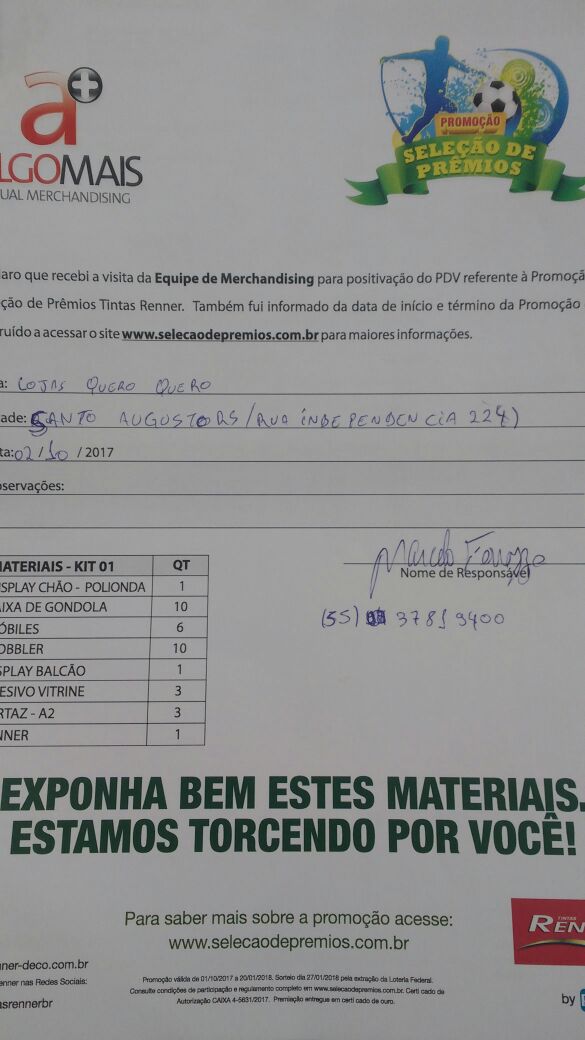 a+
LGOMAIS
UAL MERCHANDISING
PROMOÇÃO
SELEÇÃO DE
PRÊMIOS
laro que recebi a visita da Equipe de Merchandising para positivação do PDV referente à Promoçã
ção de Prêmios Tintas Renner. Também fui informado da data de início e término da Promoção
ruído a acessar o site www.selecaodepremios.com.br para maiores informações.
a: LOJAS QUERO QUERO
ade: SANTO AUGUSTO RS / RUA INDEPENDENCIA 224)
ta: 02/10 / 2017
servações:
Marcelo
Nome de Responsável
(55) 3781 9400
MATERIAIS - KIT 01 QT
SPLAY CHÃO - POLIONDA 1
AIXA DE GONDOLA 10
ÓBILES 6
OBBLER 10
SPLAY BALCÃO 1
ESIVO VITRINE 3
RTAZ - A2 3
NNER 1
EXPONHA BEM ESTES MATERIAIS.
ESTAMOS TORCENDO POR VOCÊ!
Para saber mais sobre a promoção acesse:
www.selecaodepremios.com.br
TINTAS
REN
nner-deco.com.br
enner nas Redes Sociais:
asrennerbr
Promoção válida de 01/10/2017 a 20/01/2018. Sorteio dia 27/01/2018 pela extração da Loteria Federal.
Consulte condições de participação e regulamento completo em www.selecaodepremios.com.br. Certi cado de
Autorização CAIXA 4-5631/2017. Premiação entregue em certi cado de ouro.
by